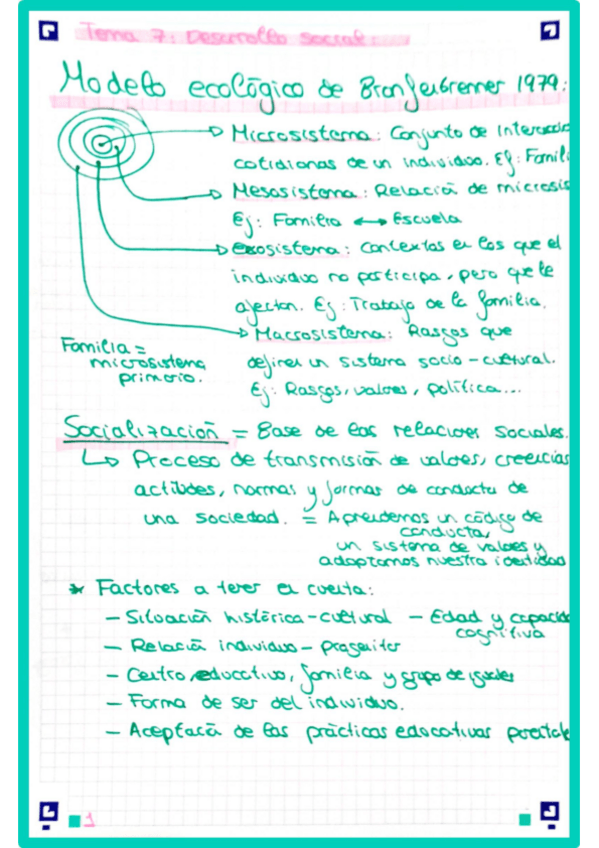 Tema 7: Desarrollo social:
Modelo ecológico de Bronfenbrenner 1979:
Microsistema: Conjunto de interaccio
cotidianas de un individuo. Ej: Famili
Mesosistema: Relación de microsis
Ej: Familia ↔ Escuela
Exosistema: Contextos en los que el
individuo no participa, pero que le
afectan. Ej: Trabajo de la familia.
Macrosistema: Rasgos que
definen un sistema socio-cultural.
Ej: Rasgos, valores, política...
Familia =
microsistema
primario.
Socialización = Base de las relaciones sociales.
↳ Proceso de transmisión de valores, creencias
actitudes, normas y formas de conducta de
una sociedad. = Aprendemos un código de
conducta,
un sistema de valores y
adoptamos nuestra identidad
* Factores a tener en cuenta:
- Situación histórica-cultural - Edad y capacida
cognitiva
- Relación individuo - progenitor
- Centro educativo, familia y grupo de iguales
- Forma de ser del individuo.
- Aceptación de las prácticas educativas parentale
1